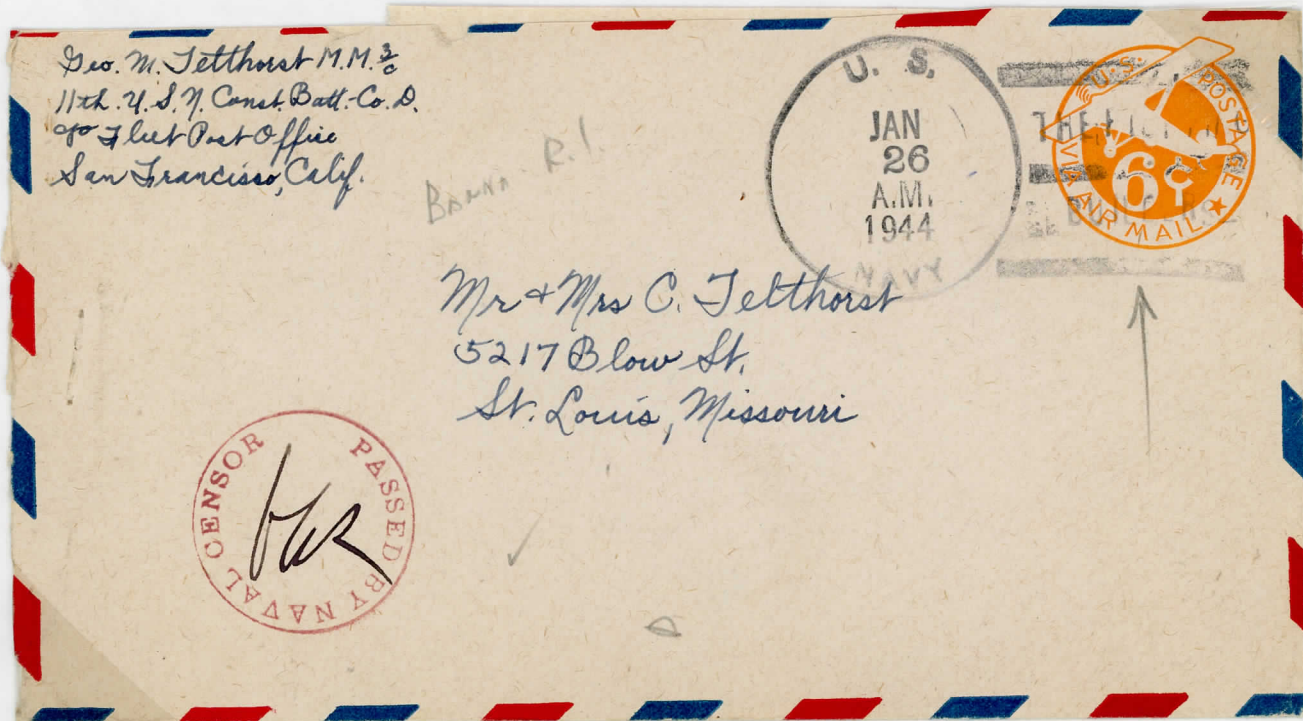 Geo. M. Telthorst M.M. 3/c
11th. U.S.N. Const. Batt.-Co. D.
c/o Fleet Post Office
San Francisco, Calif.
R.I.
U. S.
JAN
26
A.M.
1944
NAVY
THE
U.S. POSTAGE
6¢
VIA AIR MAIL
Mr + Mrs C. Telthorst
5217 Blow St.
St. Louis, Missouri
PASSED BY NAVAL CENSOR